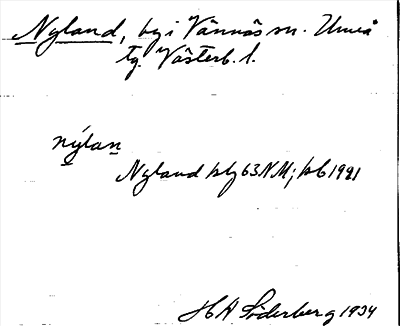 Nyland, by i Vännäs sn. Umeå
tg. Västerb. l.
nýlan
Nyland blz 63NM; kb 1921
H A Söderberg 1934